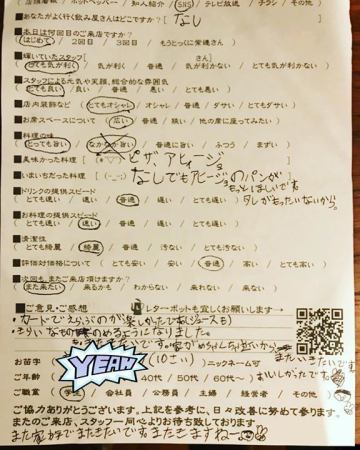 店頭看板 / ホットペッパー / 知人紹介 / SNS / テレビ放送 / チラシ / その他
■あなたがよく行く飲み屋さんはどこですか? [ なし
■本日は何回目のご来店ですか?
はじめて / 2回目 / 3回目 / もうとっくに常連さん
■輝いていたスタッフ [ さん]
とても気が利く / 気が利く / 普通 / 気が利かない / とても気が利かない
■スタッフによる元気や笑顔、総合的な雰囲気
とても良い / 良い / 普通 / 悪い / とても悪い
■店内装飾など / とてもオシャレ / オシャレ / 普通 / ダサい / とてもダサい
■お席スペースについて / 広い / 普通 / 狭い / 他の席に座ってみたい
■料理の味
とっても旨い / なかなか旨い / 普通に旨い / ふつう / まずい
■美味かった料理 [ ピザ、アヒィージョ
■いまいちだった料理 なしでもアヒージョのパンが
もっとほしいです
タレがもったいないから。
■ドリンクの提供スピード
とても速い / 速い / 普通 / 遅い / とても遅い
■お料理の提供スピード
とても速い / 速い / 普通 / 遅い / とても遅い
■清潔性
とても綺麗 / 綺麗 / 普通 / 汚い / とても汚い
■評価対価格について / とても安い / 安い / 普通 / 高い / とても高い
■次回も、またご来店頂けますか?
また来たい / 来るかも / わからない / 来れない / 来ない
■ご意見・ご感想 レターポットも宜しくお願いします→
・カードでえらぶのが楽しかったです(ジュースも)
・きらいなものもめるようになりました。
YEAH
お苗字 (10さい) ニックネーム可
またいきたいです
ご年齢 40代 / 50代 / 60代〜 おいしかったです
ご職業 学生 / 会社員 / 公務員 / 主婦 / 経営者 / その他
ご協力ありがとうございます。上記を参考に、日々改善に努めて参ります。
またのご来店、スタッフ一同心よりお待ち致しております
また家族でまたきたいです。またきますねー